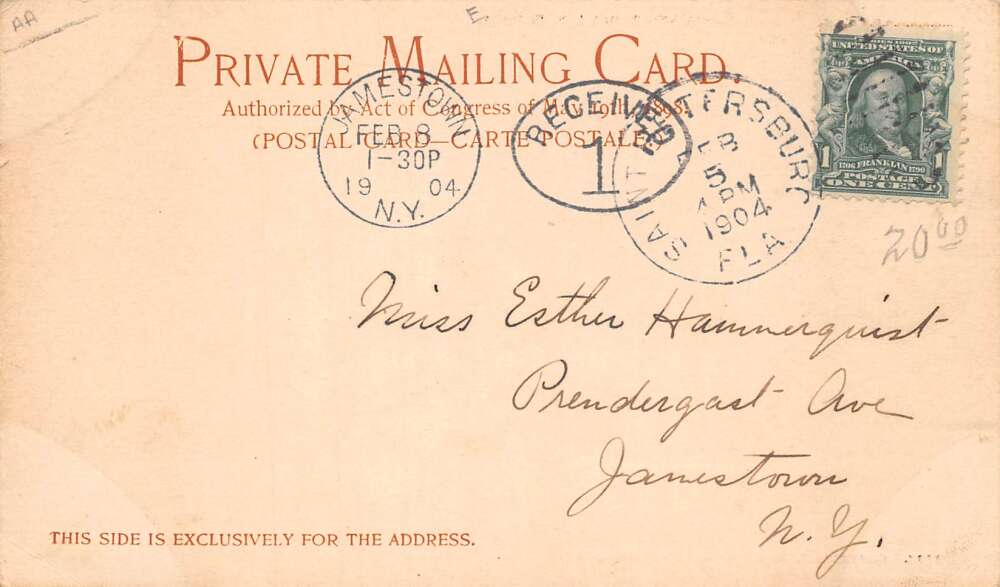 AA
E
PRIVATE MAILING CARD.
Authorized by Act of Congress of May 19th, 1898.
(POSTAL CARD—CARTE POSTALE)
JAMESTOWN
FEB 8
1-30P
19 04
N.Y.
RECEIVED
1
SAINT PETERSBURG
FEB
5
4 PM
1904
FLA
SERIES 1902
UNITED STATES OF
AMERICA
1706 FRANKLIN 1790
POSTAGE
1 ONE CENT 1
20.00
Miss Esther Hammerquist
Prendergast Ave
Jamestown
N.Y.
THIS SIDE IS EXCLUSIVELY FOR THE ADDRESS.